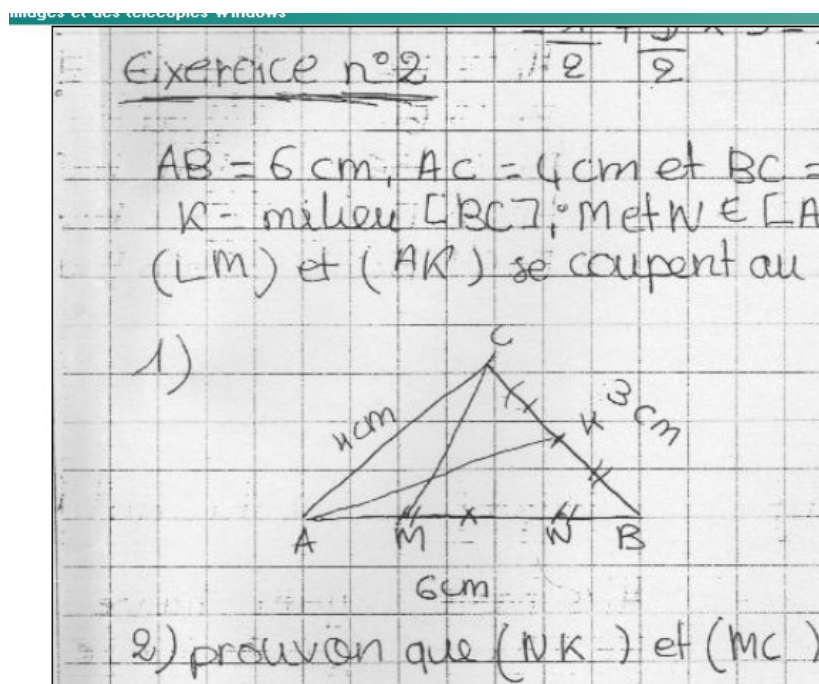 images et des télécopies Windows
Exercice n°2
2 2
AB = 6 cm, AC = 4 cm et BC =
K - milieu [BC], M et N ∈ [A
(LM) et (AK) se coupent au
1)
C
4cm
K 3cm
A M N B
6cm
2) prouvon que (NK) et (MC)